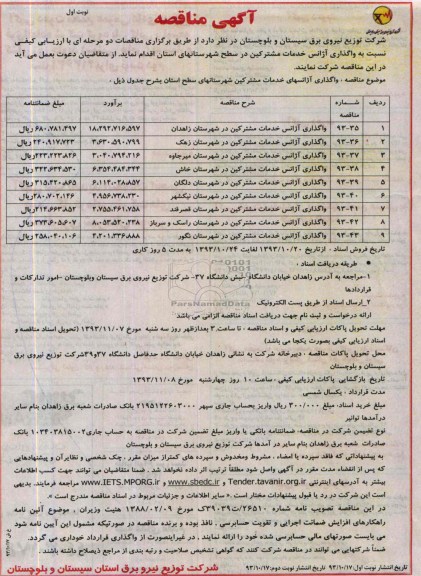 نوبت اول
آگهی مناقصه
شرکت توزیع نیروی برق سیستان و بلوچستان در نظر دارد از طریق برگزاری مناقصات دو مرحله ای با ارزیابی کیفی
نسبت به واگذاری آژانس خدمات مشترکین در سطح شهرستانهای استان اقدام نماید. از متقاضیان دعوت بعمل می آید
در این مناقصه شرکت نمایند.
موضوع مناقصه : واگذاری آژانسهای خدمات مشترکین شهرستانهای سطح استان بشرح جدول ذیل :
ردیف شماره مناقصه شرح مناقصه برآورد مبلغ ضمانتنامه
۱ ۹۳-۳۵ واگذاری آژانس خدمات مشترکین در شهرستان زاهدان ۱۸،۲۹۲،۷۱۶،۵۹۷ ۶۸۰،۷۸۱،۳۹۷ ریال
۲ ۹۳-۳۶ واگذاری آژانس خدمات مشترکین در شهرستان زهک ۳،۶۳۰،۵۹۰،۷۹۹ ۲۴۰،۹۱۷،۷۲۳ ریال
۳ ۹۳-۳۷ واگذاری آژانس خدمات مشترکین در شهرستان میرجاوه
۴ ۹۳-۳۸ واگذاری آژانس خدمات مشترکین در شهرستان خاش
۵ ۹۳-۳۹ واگذاری آژانس خدمات مشترکین در شهرستان دلگان
۶ ۹۳-۴۰ واگذاری آژانس خدمات مشترکین در شهرستان نیکشهر
۷ ۹۳-۴۱ واگذاری آژانس خدمات مشترکین در شهرستان قصرقند
۸ ۹۳-۴۲ واگذاری آژانس خدمات مشترکین در شهرستان راسک و سرباز
۹ ۹۳-۴۳ واگذاری آژانس خدمات مشترکین در شهرستان
تاریخ فروش اسناد : از تاریخ ۱۳۹۳/۱۰/۲۰ لغایت ۱۳۹۳/۱۰/۲۴ به مدت ۵ روز کاری
طریقه دریافت اسناد :
۱-مراجعه به آدرس زاهدان خیابان دانشگاه نبش دانشگاه ۳۷- شرکت توزیع نیروی برق سیستان وبلوچستان –امور تدارکات و
قراردادها
۲_ارسال اسناد از طریق پست الکترونیک
ارائه درخواست و ثبت نام جهت دریافت اسناد مناقصه الزامی می باشد
مهلت تحویل پاکات ارزیابی کیفی و اسناد مناقصه : تا ساعت ۳ بعدازظهر روز سه شنبه مورخ ۱۳۹۳/۱۱/۰۷ (تحویل اسناد مناقصه و
اسناد ارزیابی کیفی بصورت یکجا می باشد)
محل تحویل پاکات مناقصه : دبیرخانه شرکت به نشانی زاهدان خیابان دانشگاه حدفاصل دانشگاه ۳۷و۳۹شرکت توزیع نیروی برق
سیستان و بلوچستان
تاریخ بازگشایی پاکات ارزیابی کیفی : ساعت ۱۰ روز چهارشنبه مورخ ۱۳۹۳/۱۱/۰۸
مدت قرارداد : یکسال شمسی
مبلغ خرید اسناد: مبلغ ۳۰۰/۰۰۰ ریال واریز بحساب جاری سپهر ۲۱۹۵۱۴۲۶۰۳۰۰۰ بانک صادرات شعبه برق زاهدان بنام سایر
درآمدها توانیر
نوع تضمین شرکت در مناقصه: ضمانتنامه بانکی یا واریز مبلغ تضمین شرکت در مناقصه به حساب جاری۰۱۰۳۴۰۳۸۱۵۰۰۲ بانک
صادرات شعبه برق زاهدان بنام سایر در آمدها شرکت توزیع نیروی برق سیستان و بلوچستان
به پیشنهاداتی که فاقد سپرده یا امضاء ، مشروط ومخدوش و سپرده های کمتراز میزان مقرر ، چک شخصی و نظایر آن و پیشنهادهایی
که پس از انقضاء مدت مقرر در آگهی واصل شود مطلقا ترتیب اثر داده نخواهد شد . ضمنا متقاضیان می توانند جهت کسب اطلاعات
بیشتر به آدرسهای اینترنتی Tender.tavanir.org.ir و www.sbedc.ir و www.IETS.MPORG.ir مراجعه فرمایند. بدیهی
است این شرکت در رد یا قبول پیشنهادات مختار است . سایر اطلاعات و جزئیات مربوط در اسناد مناقصه مندرج است .
در این مناقصه تصویب نامه شماره ۲۶۵۱۰/ت۳۹۰۳۹ک مورخ ۱۳۸۸/۰۲/۰۹ هئیت وزیران ، موضوع آئین نامه
راهکارهای افزایش ضمانت اجرایی و تقویت حسابرسی . نافذ بوده و برنده مناقصه در صورتیکه مشمول این آیین نامه شود
می بایست صورتهای مالی حسابرسی شده خود را ارائه نمایند . در غیراینصورت از واگذاری قرارداد خودداری می گردد.
ضمنا شرکتهایی می توانند در مناقصه شرکت کنند که گواهی تشخیص صلاحیت و رتبه بندی از مراجع ذیصلاح داشته باشند .
تاریخ انتشار نوبت اول :۹۳/۱۰/۱۷ تاریخ انتشار نوبت دوم :۹۳/۱۰/۱۷ شرکت توزیع نیرو برق استان سیستان و بلوچستان